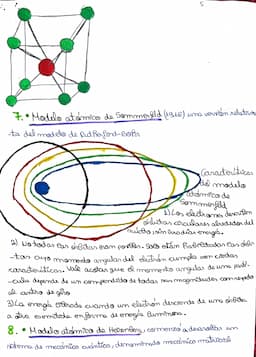 5
7. • Modelo atómico de Sommerfeld (1916) una versión relativis-
ta del modelo de Rutherford-Bohr
Características
del modelo
atómico de
Sommerfeld
1) Los electrones describen
órbitas circulares alrededor del
núcleo sin irradiar energía.
2) No todas las órbitas son posibles. Solo están
órbitas cuyo momento angular del electrón cumpla con ciertas
características. Vale aclarar que el momento angular de una partí-
cula depende de un compendio de todas sus magnitudes con respecto
al centro de giro
3) La energía liberada cuando un electrón desciende de una órbita
a otra es emitida en forma de energía lumínica.
8. • Modelo atómico de Heisenberg, comenzó a desarrollar un
sistema de mecánica cuántica, denominado mecánica matricial